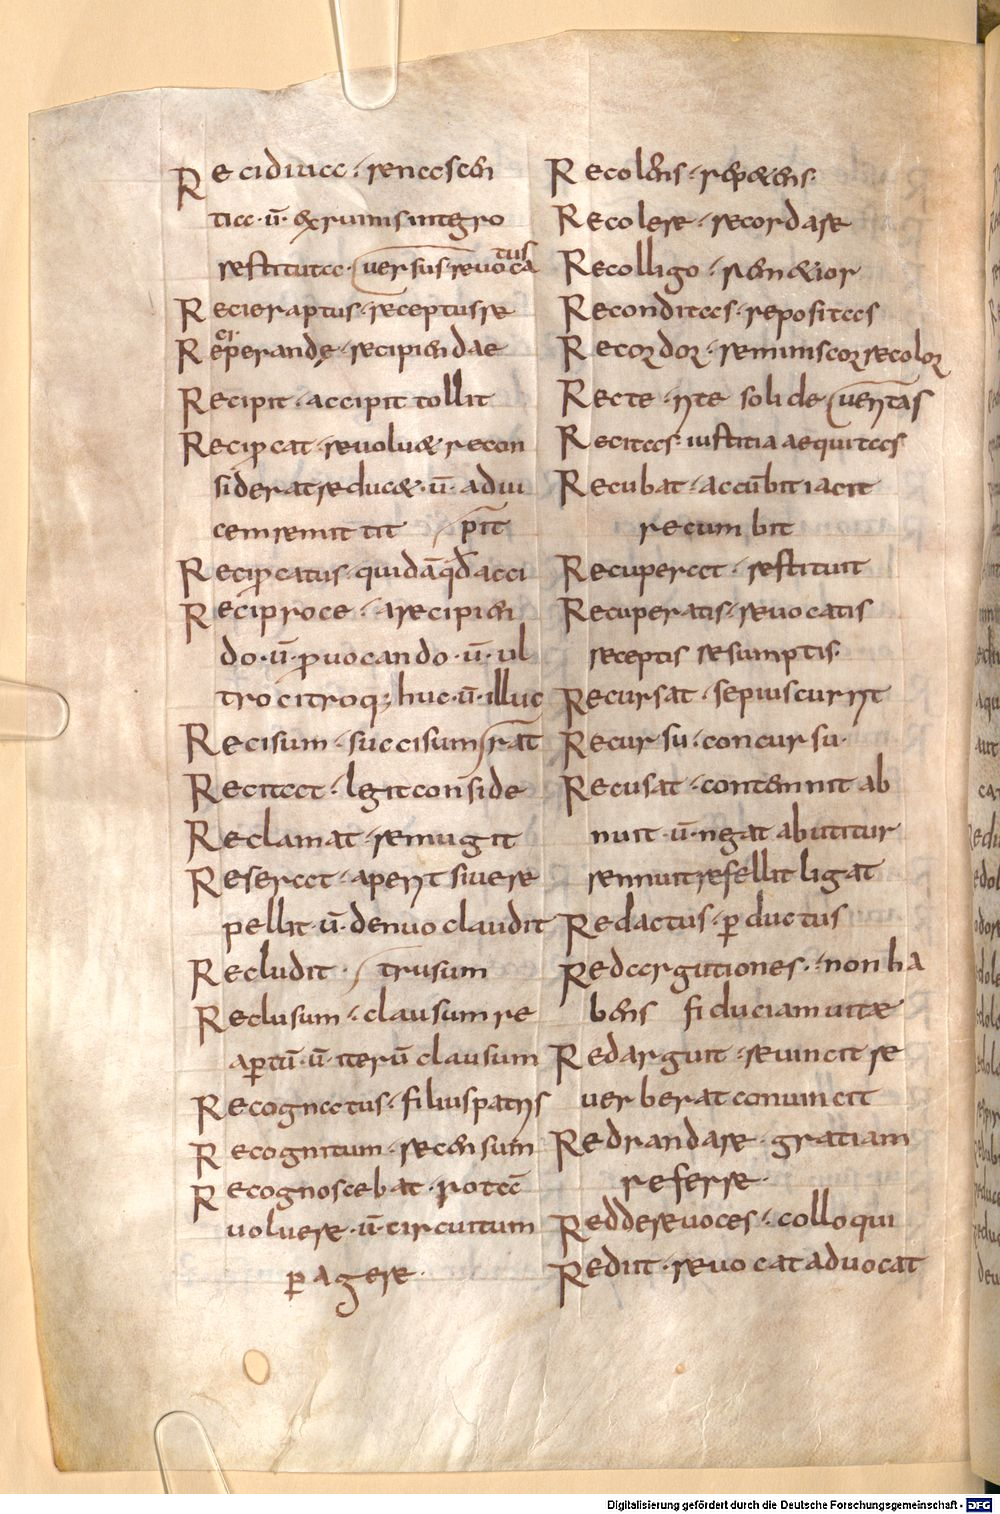 Recidiua · renascen
tia · ū · & ruinis integro
restituta · uersus · reuoca
tus
Recieraptus · receptus re
Reciperandę · recipiendae
Recipit · accipit tollit
Recip̱cat · reuolu& recon
siderat reduc& · ū · adui
cem remittit p̄it
Recip̱catus · quidā qđ acci
Reciproce · a recipien
do · ū · ꝓuocando · ū · ul
tro citroq; huc · ū · illuc
Recisum · succisum rat̄
Recitat · legit conside
Reclamat · remugit
Reserat · aperit siue re
pellit · ū · denuo claudit
Recludit · trusum
Reclusum · clausum re
aꝑtū · ū · iterū clausum
Recognatus · filius patris
Recognitum · recensum
Recognoscebat · ꝓ
uoluere · ū · circuitum
ꝑagere ·
Recolens · rep&ens ·
Recolere · recordare
Recolligo ·
Reconditas · repositas
Recordor · reminiscor recolor
Recte · rite solide ueritas
Recitas · iustitia aequitas
Recubat · accūbit iacit
recumbit
Recuperat · restituit
Recuperatis · reuocatis
receptis resumptis ·
Recursat · sepius currit
Recursu · concursu ·
Recusat · contemnit ab
nuit · ū · negat abutitur
rennuit refellit ligat
Redactus · ꝑductus
Redargutiones · non ha
bens fiduciam uitæ
Redarguit · reuincit re
uerberat conuincit
Redrandare · gratiam
referre ·
Reddere uoces · colloqui
Rediit · reuocat aduocat
Digitalisierung gefördert durch die Deutsche Forschungsgemeinschaft - DFG